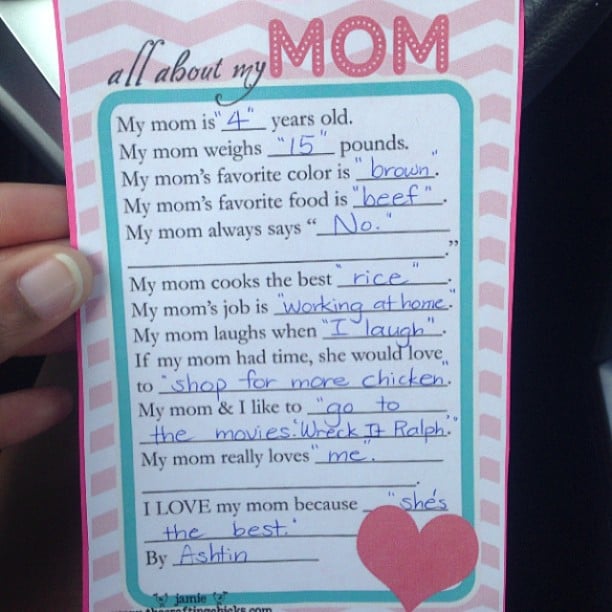 all about my MOM
My mom is "4" years old.
My mom weighs "15" pounds.
My mom's favorite color is "brown".
My mom's favorite food is "beef".
My mom always says "No."
."
My mom cooks the best "rice".
My mom's job is "working at home".
My mom laughs when "I laugh".
If my mom had time, she would love
to "shop for more chicken".
My mom & I like to "go to
the movies: 'Wreck It Ralph.'"
My mom really loves "me".
.
I LOVE my mom because "she's
the best."
By Ashtin
jamie
www.thecraftingchicks.com